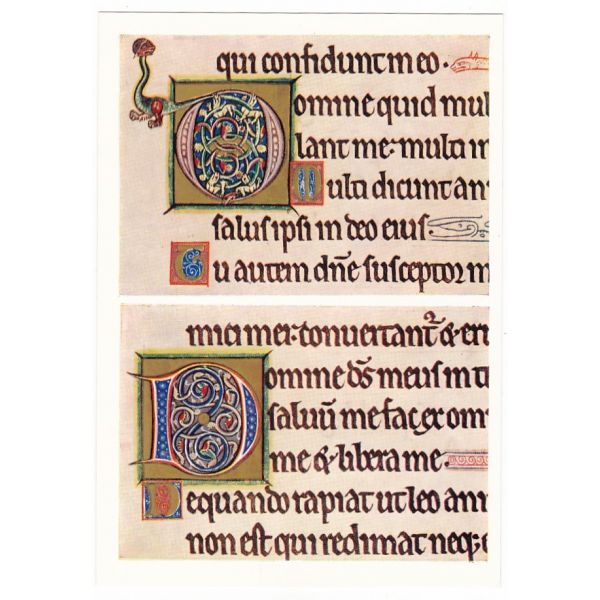 qui confidunt in eo·
Domine quid mul
lant me· multi in
Multi dicunt an
salus ipsi in deo eius·
Tu autem dn̄e susceptor m
mici mei· conuertant᷑ & eru
Domine ds̄ meus in te
saluū me fac ex om
me & libera me·
Nequando rapiat ut leo ani
non est qui redimat neq; e